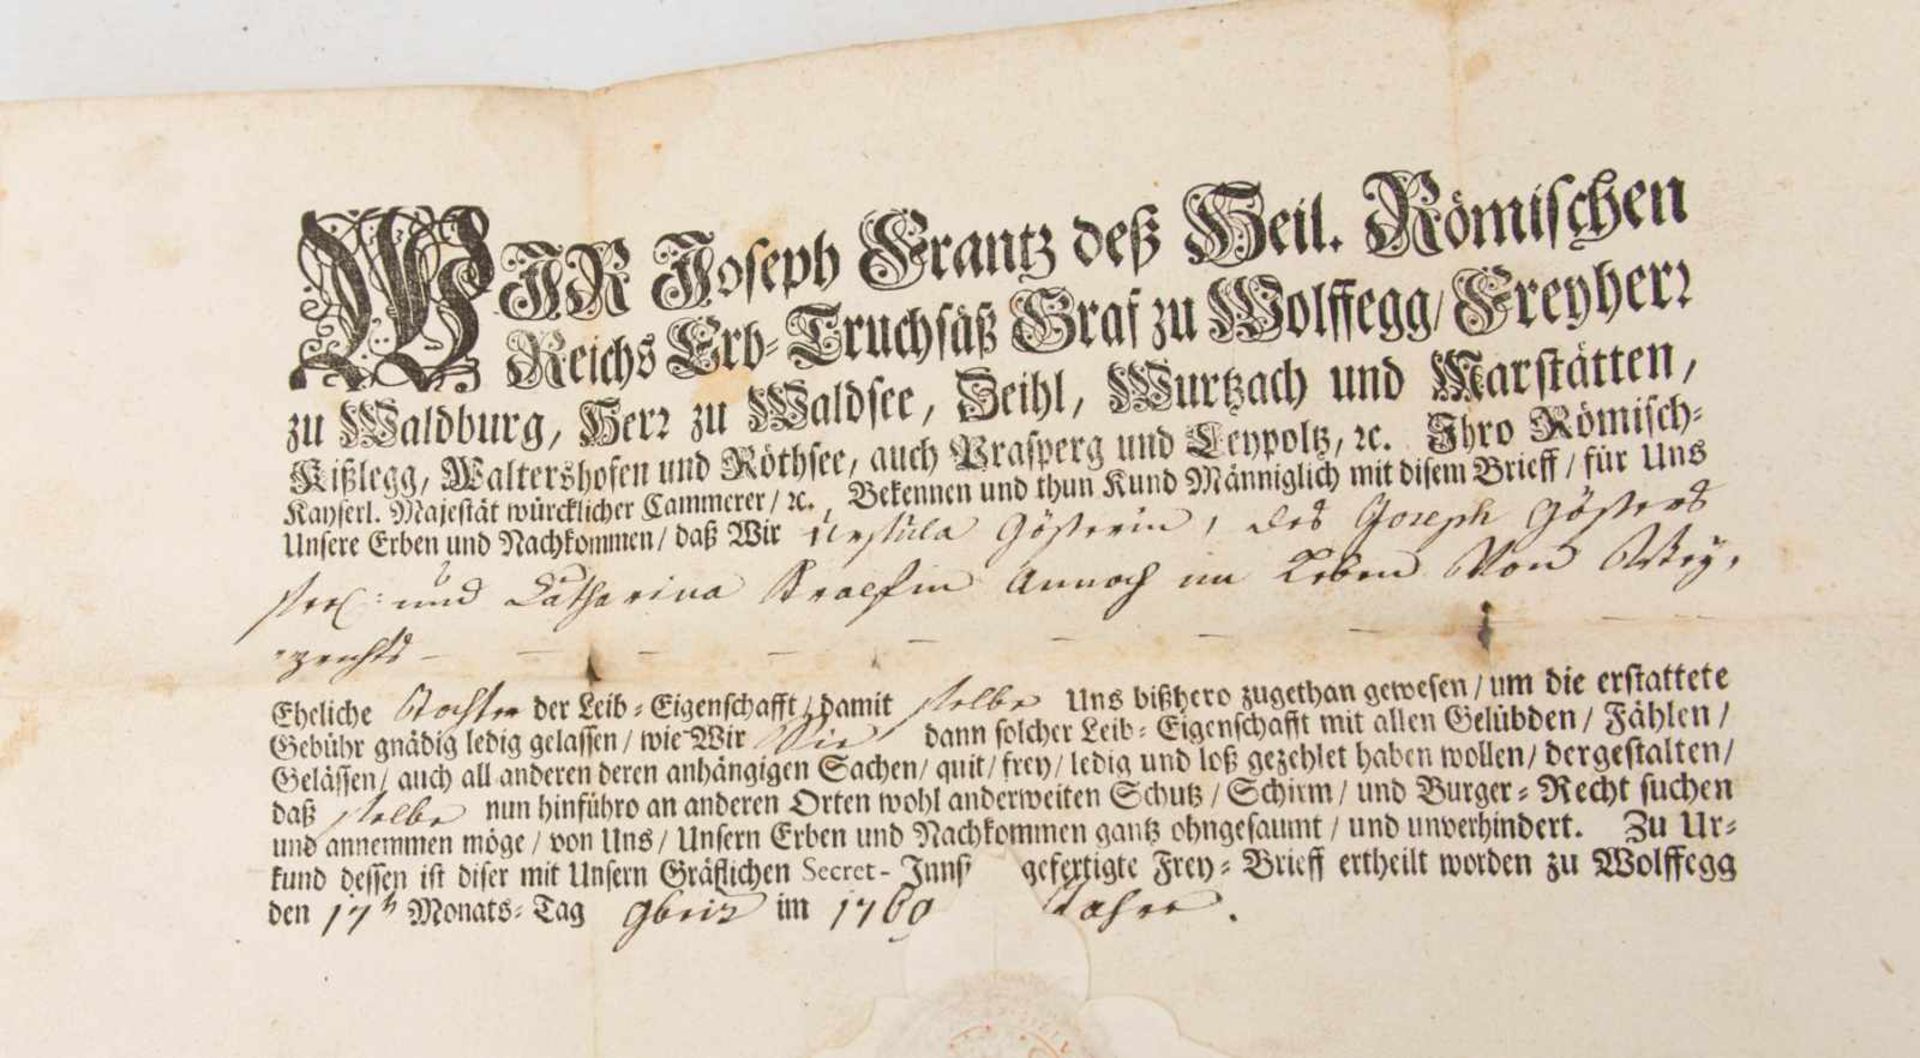 WIR Joseph Frantz deß Heil. Römischen
Reichs Erb-Truchsäß Graf zu Wolffegg/ Freyherr
zu Waldburg, Herr zu Waldsee, Zeihl, Wurtzach und Marstätten,
Kißlegg, Waltershofen und Röthsee, auch Prasperg und Leypoltz, ꝛc. Ihro Römisch-
Kayserl. Majestät würcklicher Cammerer / ꝛc., Bekennen und thun Kund Männiglich mit disem Brieff / für Uns
Unsere Erben und Nachkommen / daß Wir Ursula Gösterin, des Joseph Gösters
seel: und Catharina annoch im Leben Von
Eheliche Tochter der Leib-Eigenschafft / damit selbe Uns bißhero zugethan gewesen / um die erstattete
Gebühr gnädig ledig gelassen / wie Wir Sie dann solcher Leib-Eigenschafft mit allen Gelübden / Fählen /
Gelässen / auch all anderen deren anhängigen Sachen / quit / frey / ledig und loß gezehlet haben wollen / dergestalten /
daß selbe nun hinführo an anderen Orten wohl anderweiten Schutz / Schirm / und Burger-Recht suchen
und annemmen möge / von Uns / Unsern Erben und Nachkommen gantz ohngesaumt / und unverhindert. Zu Ur-
kund dessen ist diser mit Unsern Gräflichen Secret-Innsi gefertigte Frey-Brieff ertheilt worden zu Wolffegg
den 17t Monats-Tag 9bris im 1769 Jahre.